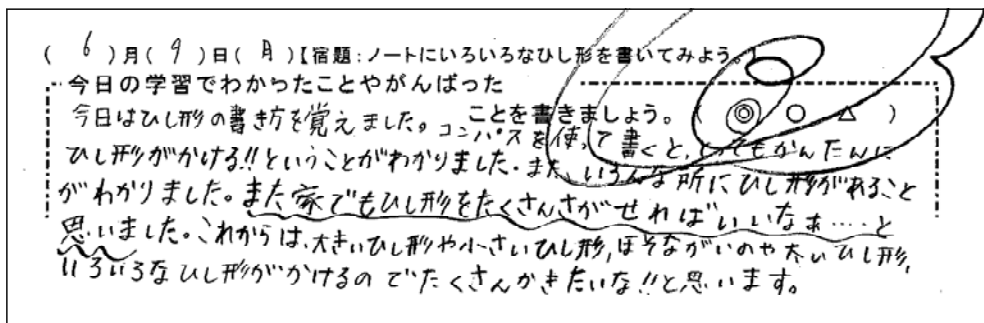 ( 6 )月( 9 )日( 月 )【宿題:ノートにいろいろなひし形を書いてみよう。】
今日の学習でわかったことやがんばった
ことを書きましょう。 ( ◎ ○ △ )
今日はひし形の書き方を覚えました。コンパスを使って書くと、とってもかんたんに
ひし形がかける!!ということがわかりました。また、いろんな所にひし形があること
がわかりました。また家でもひし形をたくさんさがせればいいなぁ….と
思いました。これからは、大きいひし形や小さいひし形,ほそながいのや太いひし形,
いろいろなひし形がかけるのでたくさんかきたいな!!と思います。